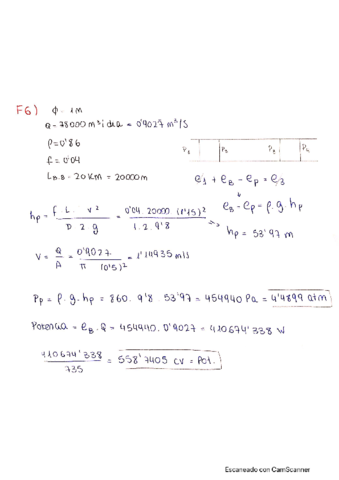 F6) φ = 1M
Q = 78000 m³/dia = 0'9027 m³/s
ρ = 0'86
f = 0'04
L B-B = 20 KM = 20000 m
P₂ P₃
e₁ + e_B - e_p = e₃
e_B = e_p = ρ · g · hp
hp = f L v² / D 2 g = 0'04 20000 (1'15)² / 1 · 2 · 9'8 => hp = 53'97 m
V = Q / A = 0'9027 / π (0'5)² = 1'14935 m/s
Pp = ρ · g · hp = 860 · 9'8 53'97 = 454940 Pa = 4'4899 atm
Potencia = e_B · Q = 454940 · 0'9027 = 410674'338 W
410674'338 / 735 = 558'7405 CV = Pot.
Escaneado con CamScanner